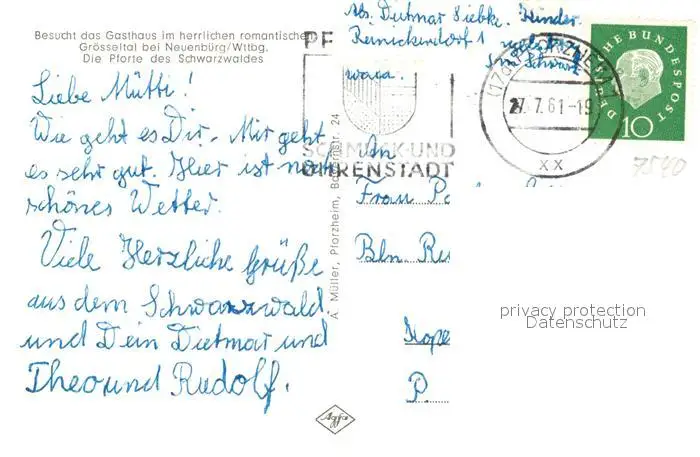 Besucht das Gasthaus im herrlichen romantischen
Grösseltal bei Neuenbürg/Wttbg.
Die Pforte des Schwarzwaldes
Liebe Mutti!
Wie geht es Dir. Mir geht
es sehr gut. Hier ist noch
schönes Wetter.
Viele Herzliche Grüße
aus dem Schwarzwald
und Dein Dietmar und
Theo und Rudolf.
A. Müller, Pforzheim, 24
Abs. Dietmar Siebke, Kinder
Reinickendorf 1
im Schwarz
PF
SCHMUCK-UND
UHRENSTADT
27.7.61-19
XX
DEUTSCHE BUNDESPOST
10
7540
An
Frau
Bln
Kope
P.
privacy protection
Datenschutz
Agfa